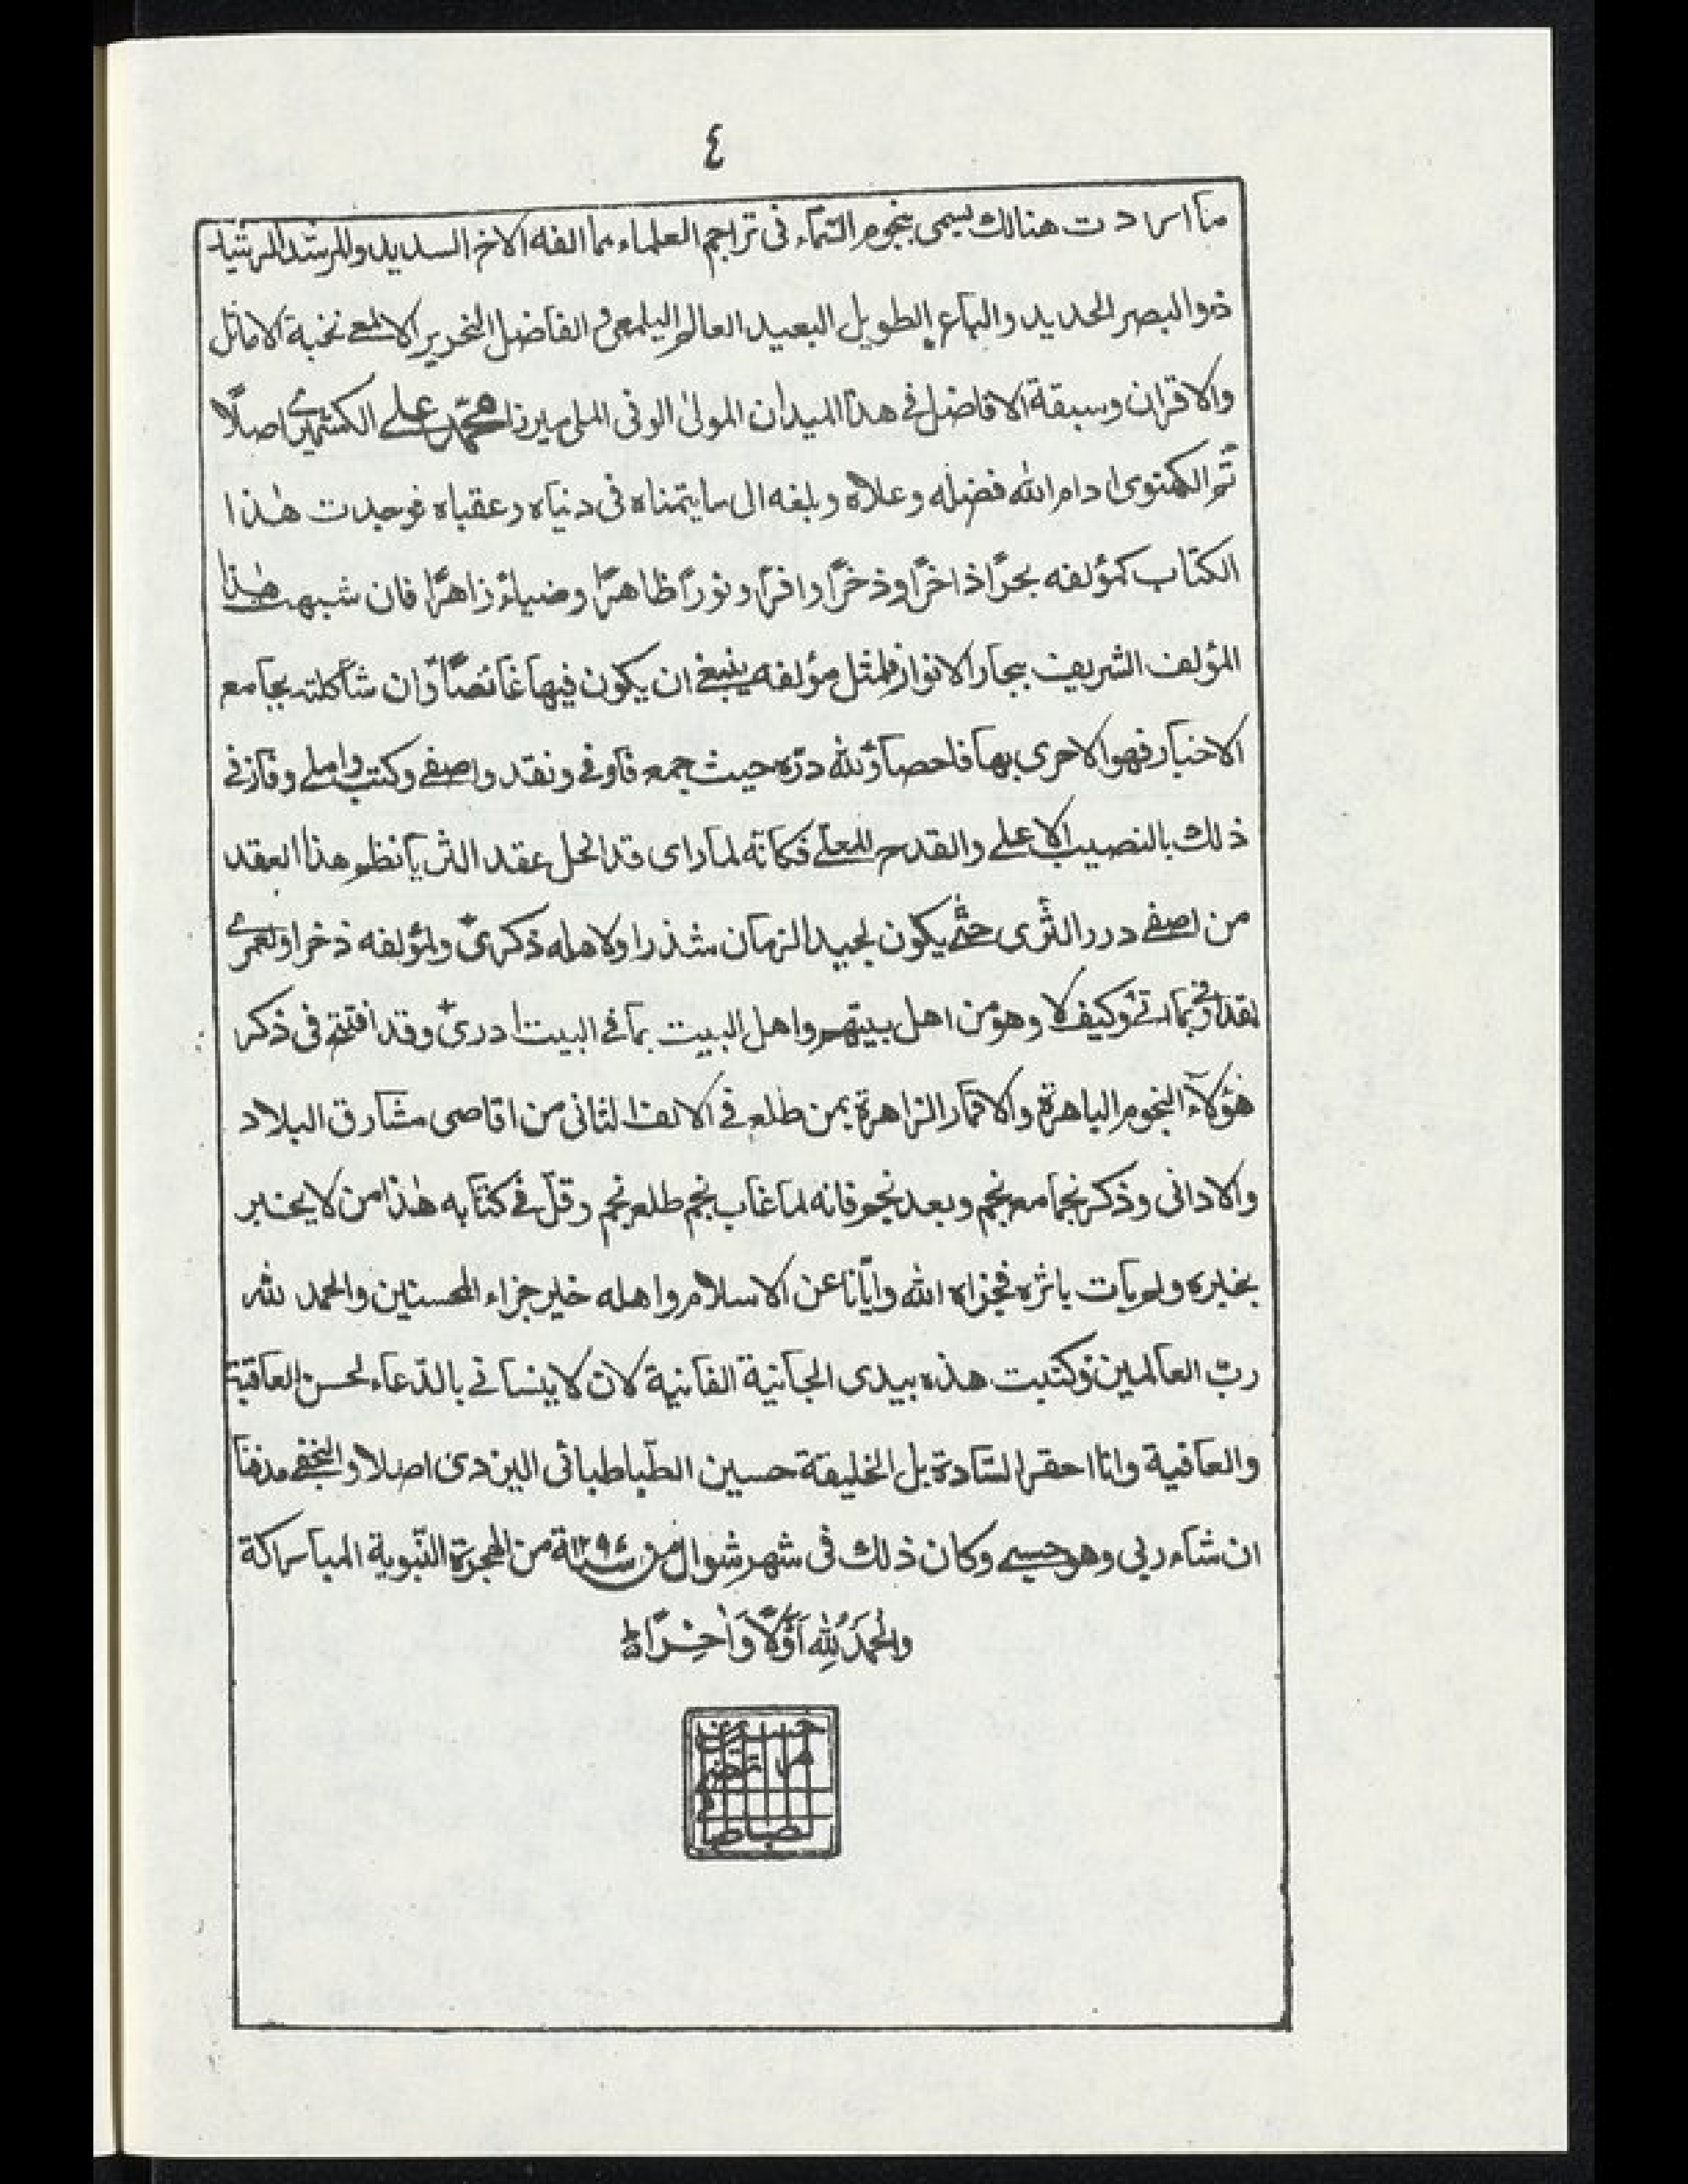 ٤
ما اردت هنالك يسمى بنجوم السّماء فى تراجم العلماء مما الفه الاخ السديد والمرشد الرشيد
ذو البصر الحديد والباع الطويل البعيد العالم اليلمعى و الفاضل النحرير الالمعى نخبة الاماثل
والاقران وسبقة الافاضل فى هذا الميدان المولىٰ الوفى الملى ميرزا محمّد على الكشميرى اصلًا
ثم اللكهنوى ادام الله فضله وعلاه وبلغه الى ما يتمناه فى دنياه وعقباه فوجدت هٰذا
الكتاب كمؤلفه بحرًا ذاخرًا وذخرًا وافرًا ونورًا ظاهرًا وضياءً زاهرًا فان شبهت هٰذا
المؤلف الشريف ببحار الانوار فلمثل مؤلفه ينبغى ان يكون فيها غائصًا وان شاكلته بجامع
الاخبار فهو الاحرى بها فاحصا ولله درّه حيث جمع فاوفى ونقد واصفى وكتب واملى وفاز فى
ذلك بالنصيب الاعلى والقدح المعلى فكانّه لما راى قد انحل عقد الثريا نظم هذا العقد
من اصفى درر الثرى حتّٰى يكون لجيد الزمان شذرا ولاهله ذكرىٰ ولمؤلفه ذخرا ولعمرى
لقد بما اتى وكيف لا وهو من اهل بيتهم واهل البيت بما فى البيت ادرىٰ وقد افتتح فى ذكر
هٰؤلآء النجوم الباهرة والاقمار الزاهرة بمن طلع فى الالف الثانى من اقاصى مشارق البلاد
والادانى وذكر نجما مع نجم وبعد نجم فانه لما غاب نجم طلع نجم وقلّ فى كتابه هٰذا من لا يخبر
بخبره ولم يات باثره فجزاه الله وايّانا عن الاسلام واهله خير جزاء المحسنين والحمد لله
ربّ العالمين وكتبت هذه بيدى الجانية الفانية لان لا ينسانى بالدّعاء لحسن العاقبة
والعافية وانا احقر السّادة بل الخليقة حسين الطّباطبائى اليزدى اصلا والنجفى مدفنا
ان شاء ربى وهو حسبى وكان ذلك فى شهر شوال من سنة ١٢٩٤ من الهجرة النّبوية المباركة
والحَمدُ لِلّٰهِ اَوَّلًا وَاٰخِرًا
حسين
مرتضى
الطباطبا